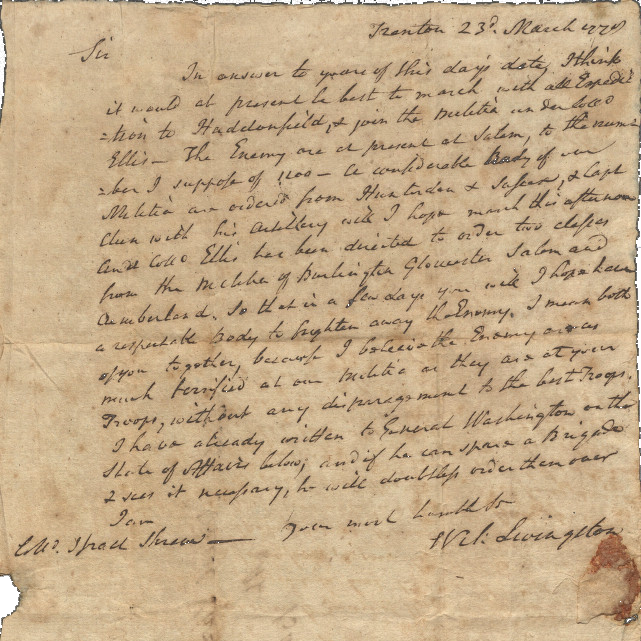 Trenton 23d. March 1778
Sir
In answer to yours of this day's date, I think
it would at present be best to march with all Expedi
=tion to Haddonfield, & join the Militia under Collo
Ellis — The Enemy are at present at Salem, to the num=
=ber I suppose of 1100 — A considerable Body of our
Militia are ordered from Hunterdon & Sussex, & Capt
Clun with his artillery will I hope march this afternoon
And Collo Ellis has been directed to order two classes
from the Militia of Burlington Gloucester Salem and
Cumberland. So that in a few days you will I hope have
a respectable body to frighten away the Enemy. I mean both
of you together, because I believe the Enemy are as
much terrified at our Militia as they are at your
Troops, without any disparagement to the best Troops.
I have already written to General Washington on the
State of Affairs below, and if he can spare a Brigade
& sees it necessary, he will doubtless order them over
I am
your most humble Ser
Collo. Israel Shreve —
Wil: Livingston